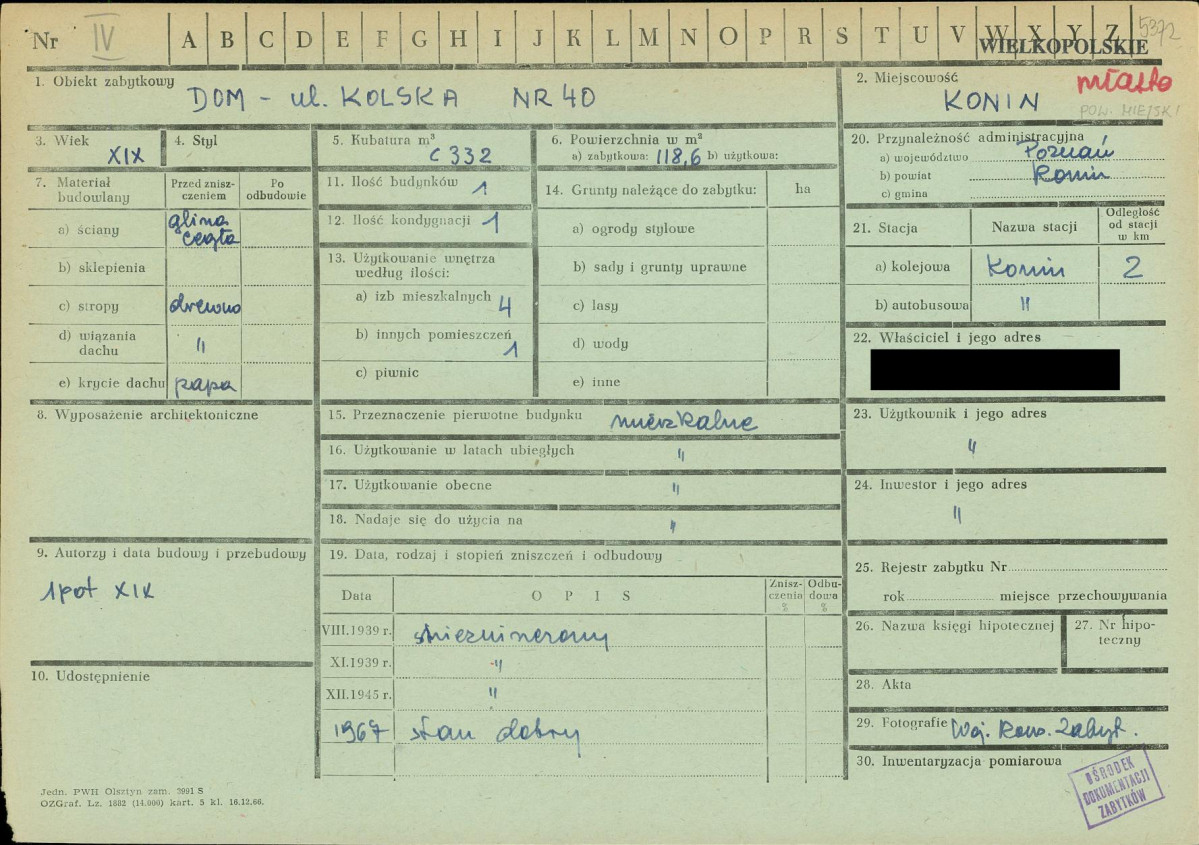 Nr IV A B C D E F G H I J K L M N O P R S T U V W X Y Z 5372
WIELKOPOLSKIE
1. Obiekt zabytkowy
DOM - ul. KOLSKA NR 40
2. Miejscowość
miasto
KONIN
POW. MIEJSKI
3. Wiek
XIX
4. Styl
5. Kubatura m³
c 332
6. Powierzchnia w m²
a) zabytkowa: 118,6 b) użytkowa:
7. Materiał budowlany
Przed zniszczeniem
Po odbudowie
a) ściany
glina
cegła
b) sklepienia
c) stropy drewno
d) wiązania dachu "
e) krycie dachu papa
8. Wyposażenie architektoniczne
9. Autorzy i data budowy i przebudowy
1 poł XIX
10. Udostępnienie
11. Ilość budynków 1
12. Ilość kondygnacji 1
13. Użytkowanie wnętrza
według ilości:
a) izb mieszkalnych 4
b) innych pomieszczeń 1
c) piwnic
14. Grunty należące do zabytku: ha
a) ogrody stylowe
b) sady i grunty uprawne
c) lasy
d) wody
e) inne
15. Przeznaczenie pierwotne budynku mieszkalne
16. Użytkowanie w latach ubiegłych "
17. Użytkowanie obecne "
18. Nadaje się do użycia na "
19. Data, rodzaj i stopień zniszczeń i odbudowy
Data
OPIS
Zniszczenia %
Odbudowa %
VIII.1939 r.
XI.1939 r. "
XII.1945 r. "
1967 stan dobry
20. Przynależność administracyjna
a) województwo Poznań
b) powiat Konin
c) gmina
21. Stacja
Nazwa stacji
Odległość od stacji w km
a) kolejowa Konin 2
b) autobusowa "
22. Właściciel i jego adres
23. Użytkownik i jego adres
"
24. Inwestor i jego adres
"
25. Rejestr zabytku Nr
rok miejsce przechowywania
26. Nazwa księgi hipotecznej
27. Nr hipoteczny
28. Akta
29. Fotografie Woj. Kons. Zabyt.
30. Inwentaryzacja pomiarowa
OŚRODEK
DOKUMENTACJI
ZABYTKÓW
Jedn. PWH Olsztyn zam. 3991 S
OZGraf. Lz. 1882 (14.000) kart. 5 kl. 16.12.66.